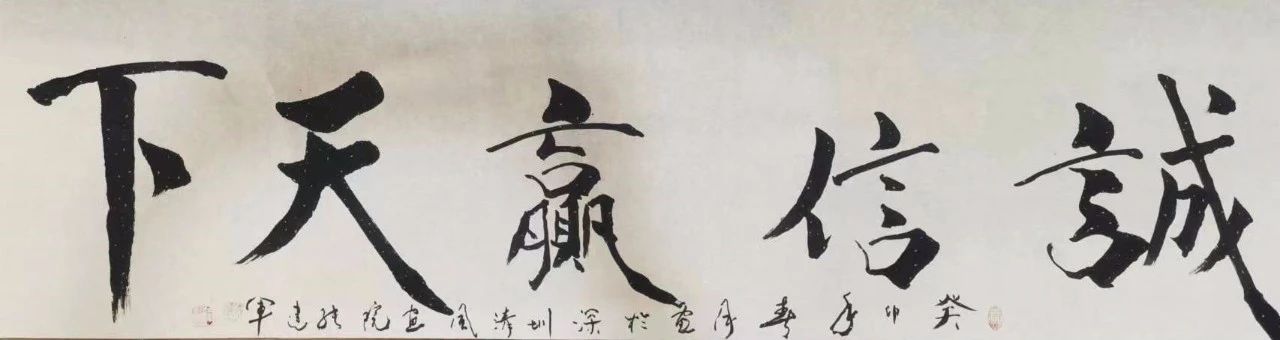 誠信贏天下
癸卯年春月書於深圳濤風畫院 建軍